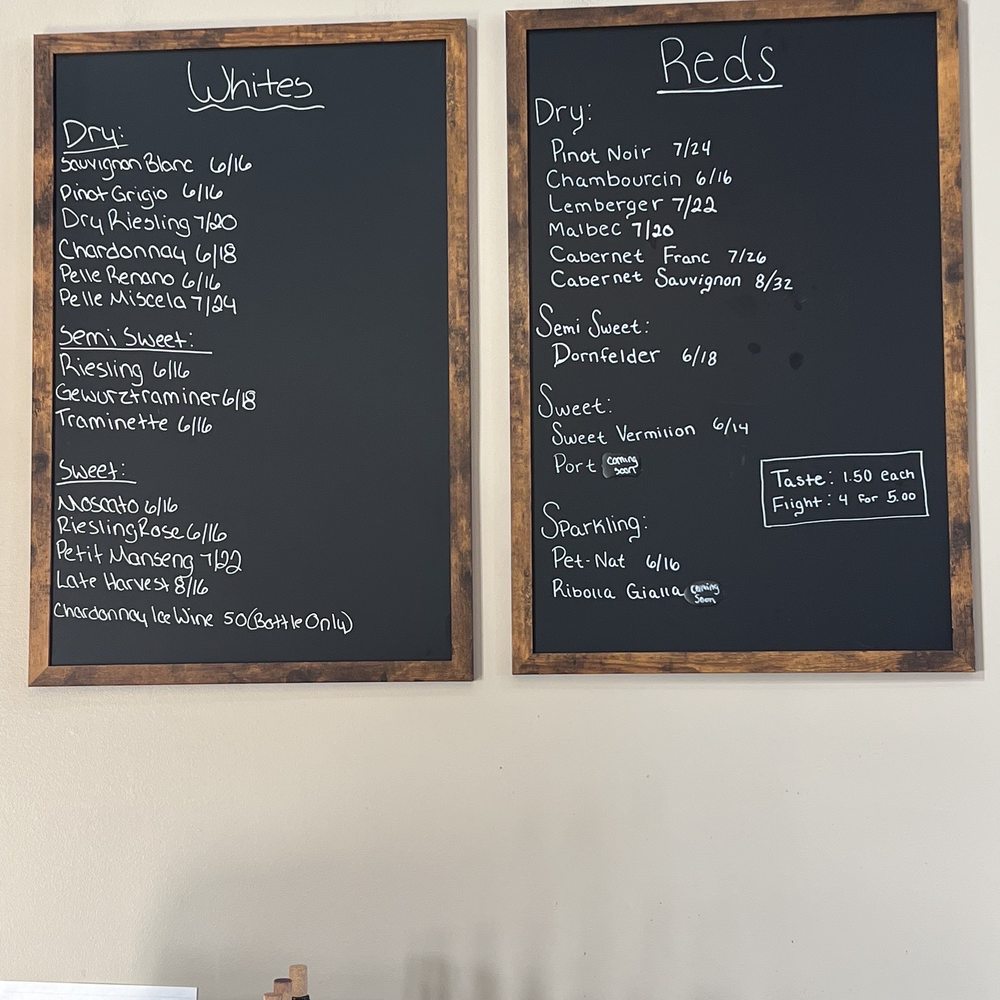 Whites
Dry:
Sauvignon Blanc 6/16
Pinot Grigio 6/16
Dry Riesling 7/20
Chardonnay 6/18
Pelle Renano 6/16
Pelle Miscela 7/24
Semi Sweet:
Riesling 6/16
Gewurztraminer 6/18
Traminette 6/16
Sweet:
Moscato 6/16
Riesling Rose 6/16
Petit Manseng 7/22
Late Harvest 8/16
Chardonnay Ice Wine 50 (Bottle Only)
Reds
Dry:
Pinot Noir 7/24
Chambourcin 6/16
Lemberger 7/22
Malbec 7/20
Cabernet Franc 7/26
Cabernet Sauvignon 8/32
Semi Sweet:
Dornfelder 6/18
Sweet:
Sweet Vermilion 6/14
Port coming soon
Taste: 1.50 each
Flight: 4 for 5.00
Sparkling:
Pet-Nat 6/16
Ribolla Gialla coming soon